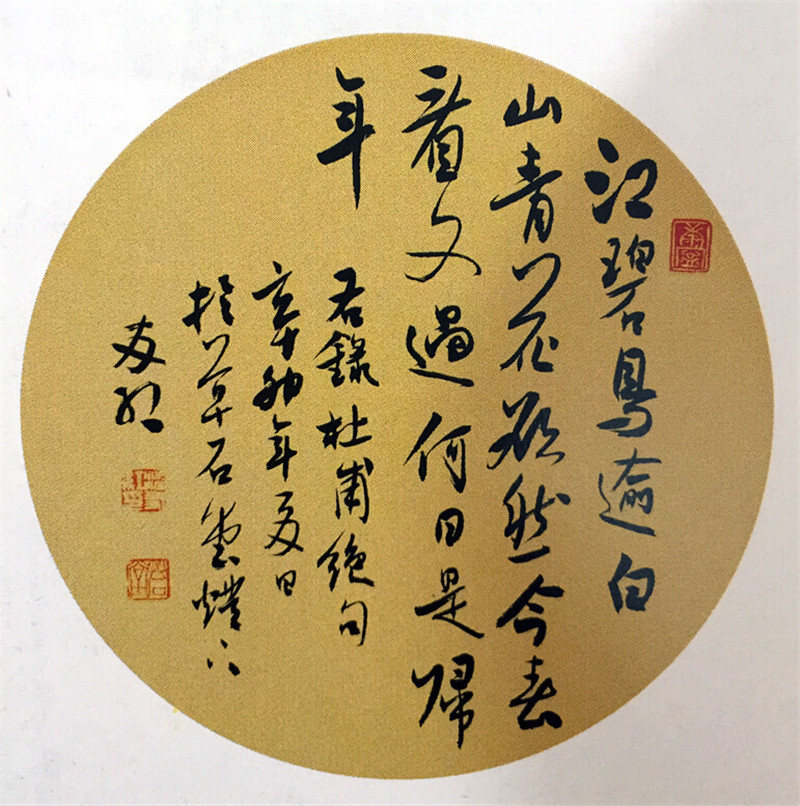 江碧鳥逾白
山青花欲然今春
看又過何日是歸
年
右錄杜甫絕句
辛卯年夏日
於草石堂燈下